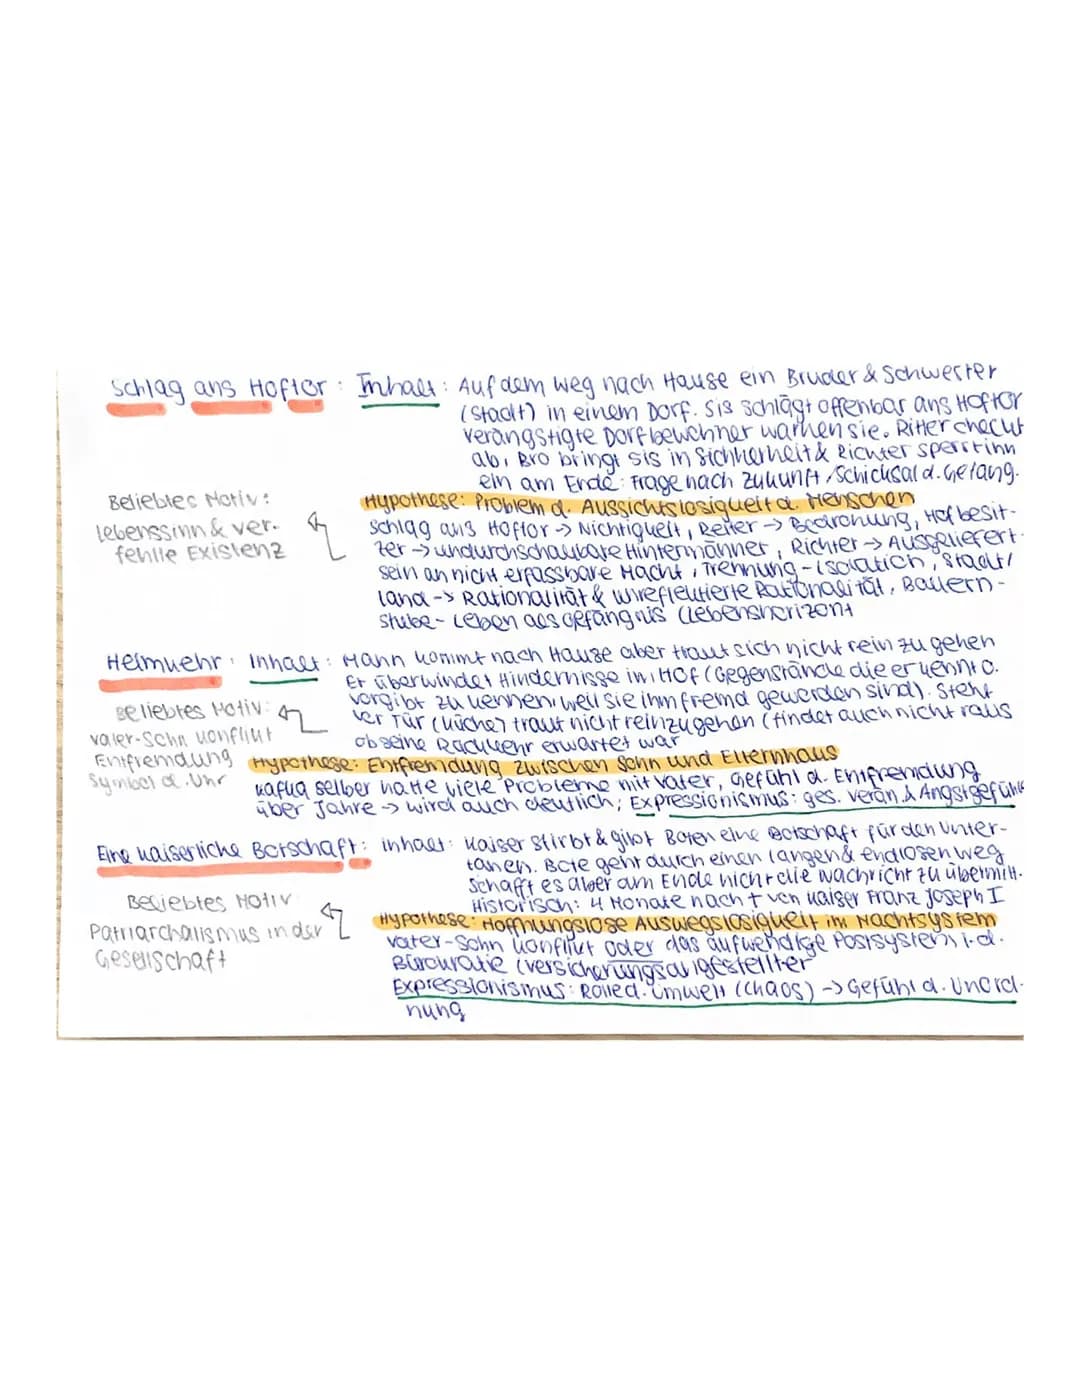 Schlag ans Hoftor: Inhalt: Auf dem weg nach Hause ein Bruder & Schwester
(Stadt) in einem Dorf. Sis schlägt offenbar ans Hoftor
verängstigte Dorfbewohner warnen sie. Ritter checkt
ab, Bro bringt sis in Sichherheit & Richter sperrt ihn
ein am Ende: Frage nach Zukunft / Schicksal d. Gefang.
Beliebtes Motiv:
Lebenssinn & ver-
fehlte Existenz
Hypothese: Problem d. Aussichtslosigkeit d. Menschen
Schlag ans Hoftor -> Nichtigkeit, Reiter -> Bedrohung, Hofbesit-
zer -> undurchschaubare Hintermänner, Richter -> Ausgeliefert-
sein an nicht erfassbare Macht, Trennung - Isolation, Stadt/
Land -> Rationalität & unreflektierte Rationalität, Bauern-
stube - Leben als Gefängnis (Lebenshorizont
Heimkehr: Inhalt: Mann kommt nach Hause aber traut sich nicht rein zu gehen
Er überwindet Hindernisse im Hof (Gegenstände die er kennt o.
vorgibt zu kennen, weil sie ihm fremd geworden sind). Steht
vor Tür (Küche) traut nicht reinzugehen (findet auch nicht raus
ob seine Rückkehr erwartet war
Beliebtes Motiv:
Vater-Sohn Konflikt
Entfremdung
Symbol d. Uhr
Hypothese: Entfremdung zwischen Sohn und Elternhaus
Kafka selber hatte viele Probleme mit Vater, Gefühl d. Entfremdung
über Jahre -> wird auch deutlich; Expressionismus: ges. Verän. & Angstgefühle
Eine kaiserliche Botschaft: Inhalt: Kaiser stirbt & gibt Boten eine Botschaft für den Unter-
tanen. Bote geht durch einen langen & endlosen weg
schafft es aber am Ende nicht die Nachricht zu übermitt.
Historisch: 4 Monate nach † von Kaiser Franz Joseph I
Beliebtes Motiv
Patriarchalismus in der
Gesellschaft
Hypothese: Hoffnungslose Auswegslosigkeit im Machtsystem
Vater-Sohn Konflikt oder das aufwendige Postsystem i.d.
Bürokratie (Versicherungsangestellter
Expressionismus: Rolle d. Umwelt (Chaos) -> Gefühl d. Unord-
nung